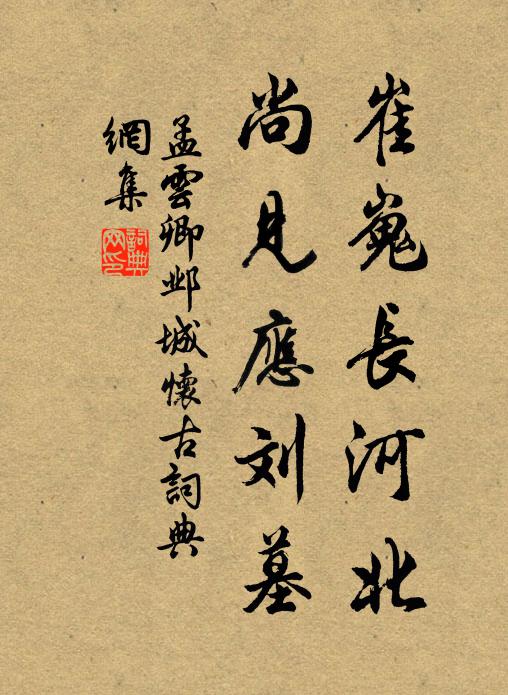 崔嵬長河北
尚見應刘墓
孟雲卿邺城懷古詞典
網集
詞典
网印